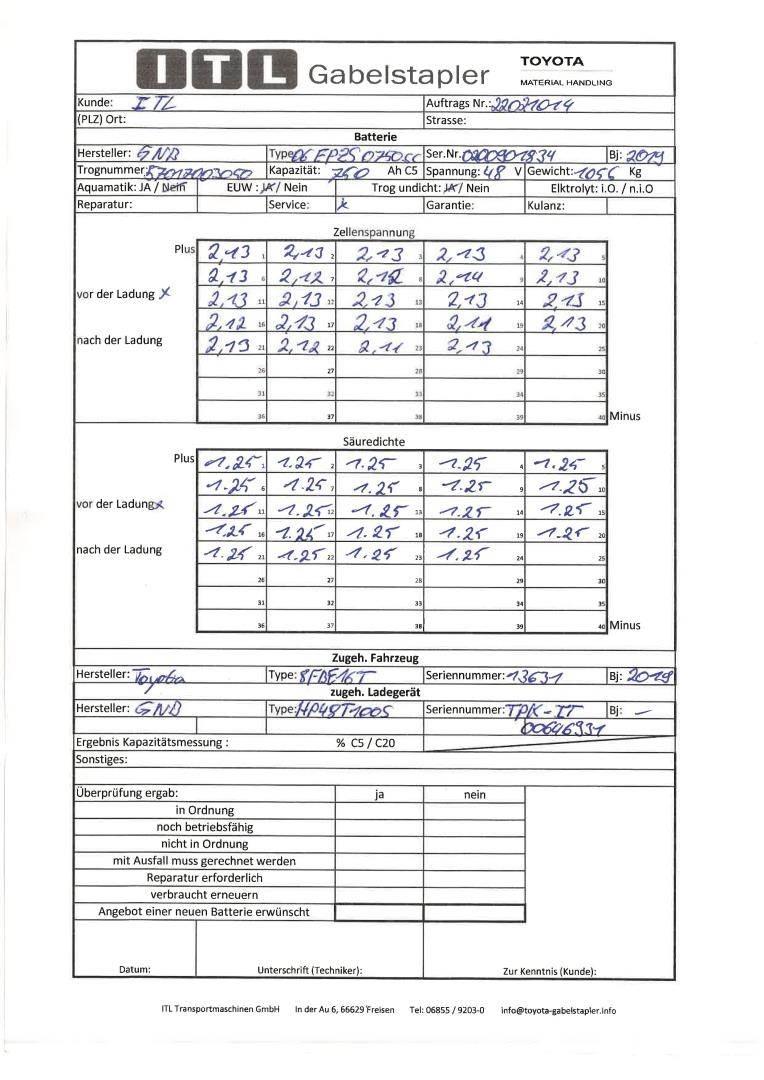 ITL Gabelstapler TOYOTA
MATERIAL HANDLING
Kunde: ITL Auftrags Nr.: 22021014
(PLZ) Ort: Strasse:
Batterie
Hersteller: GNB Type: 06 EPZS 0750 SC Ser.Nr. 0200901834 Bj: 2019
Trognummer: 57017003050 Kapazität: 750 Ah C5 Spannung: 48 V Gewicht: 1056 Kg
Aquamatik: JA / Nein EUW : JA / Nein Trog undicht: JA / Nein Elktrolyt: i.O. / n.i.O
Reparatur: Service: x Garantie: Kulanz:
Zellenspannung
Plus 2,13 1 2,13 2 2,13 3 2,13 4 2,13 5
2,13 6 2,12 7 2,12 8 2,14 9 2,13 10
vor der Ladung x 2,13 11 2,13 12 2,13 13 2,13 14 2,13 15
2,12 16 2,13 17 2,13 18 2,11 19 2,13 20
nach der Ladung 2,13 21 2,12 22 2,11 23 2,13 24 25
26 27 28 29 30
31 32 33 34 35
36 37 38 39 40 Minus
Säuredichte
Plus 1.25 1 1.25 2 1.25 3 1.25 4 1.25 5
1.25 6 1.25 7 1.25 8 1.25 9 1.25 10
vor der Ladung x 1.25 11 1.25 12 1.25 13 1.25 14 1.25 15
1.25 16 1.25 17 1.25 18 1.25 19 1.25 20
nach der Ladung 1.25 21 1.25 22 1.25 23 1.25 24 25
26 27 28 29 30
31 32 33 34 35
36 37 38 39 40 Minus
Zugeh. Fahrzeug
Hersteller: Toyota Type: 8FBE16T Seriennummer: 13631 Bj: 2019
zugeh. Ladegerät
Hersteller: GNB Type: HP48T100S Seriennummer: TPK-IT Bj: —
00646931
Ergebnis Kapazitätsmessung : % C5 / C20
Sonstiges:
Überprüfung ergab: ja nein
in Ordnung
noch betriebsfähig
nicht in Ordnung
mit Ausfall muss gerechnet werden
Reparatur erforderlich
verbraucht erneuern
Angebot einer neuen Batterie erwünscht
Datum: Unterschrift (Techniker): Zur Kenntnis (Kunde):
ITL Transportmaschinen GmbH In der Au 6, 66629 Freisen Tel: 06855 / 9203-0 info@toyota-gabelstapler.info